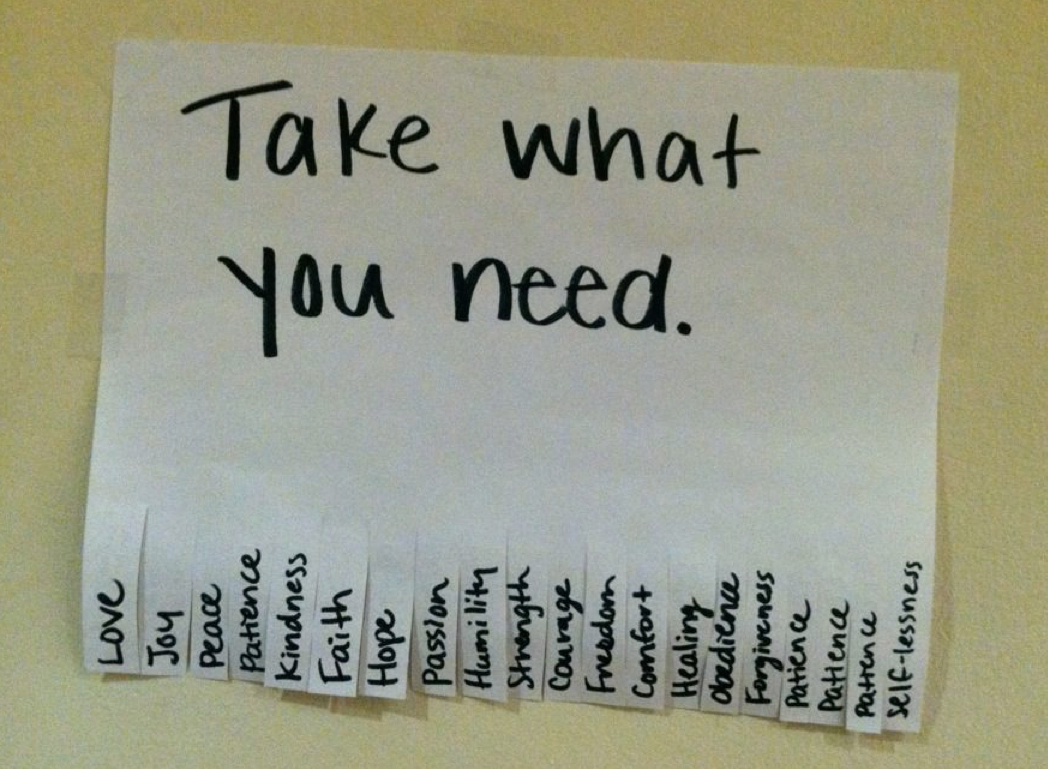 Take what
you need.
Love
Joy
Peace
Patience
Kindness
Faith
Hope
Passion
Humility
Strength
Courage
Freedom
Comfort
Healing
Obedience
Forgiveness
Patience
Patience
Patience
Self-lessness